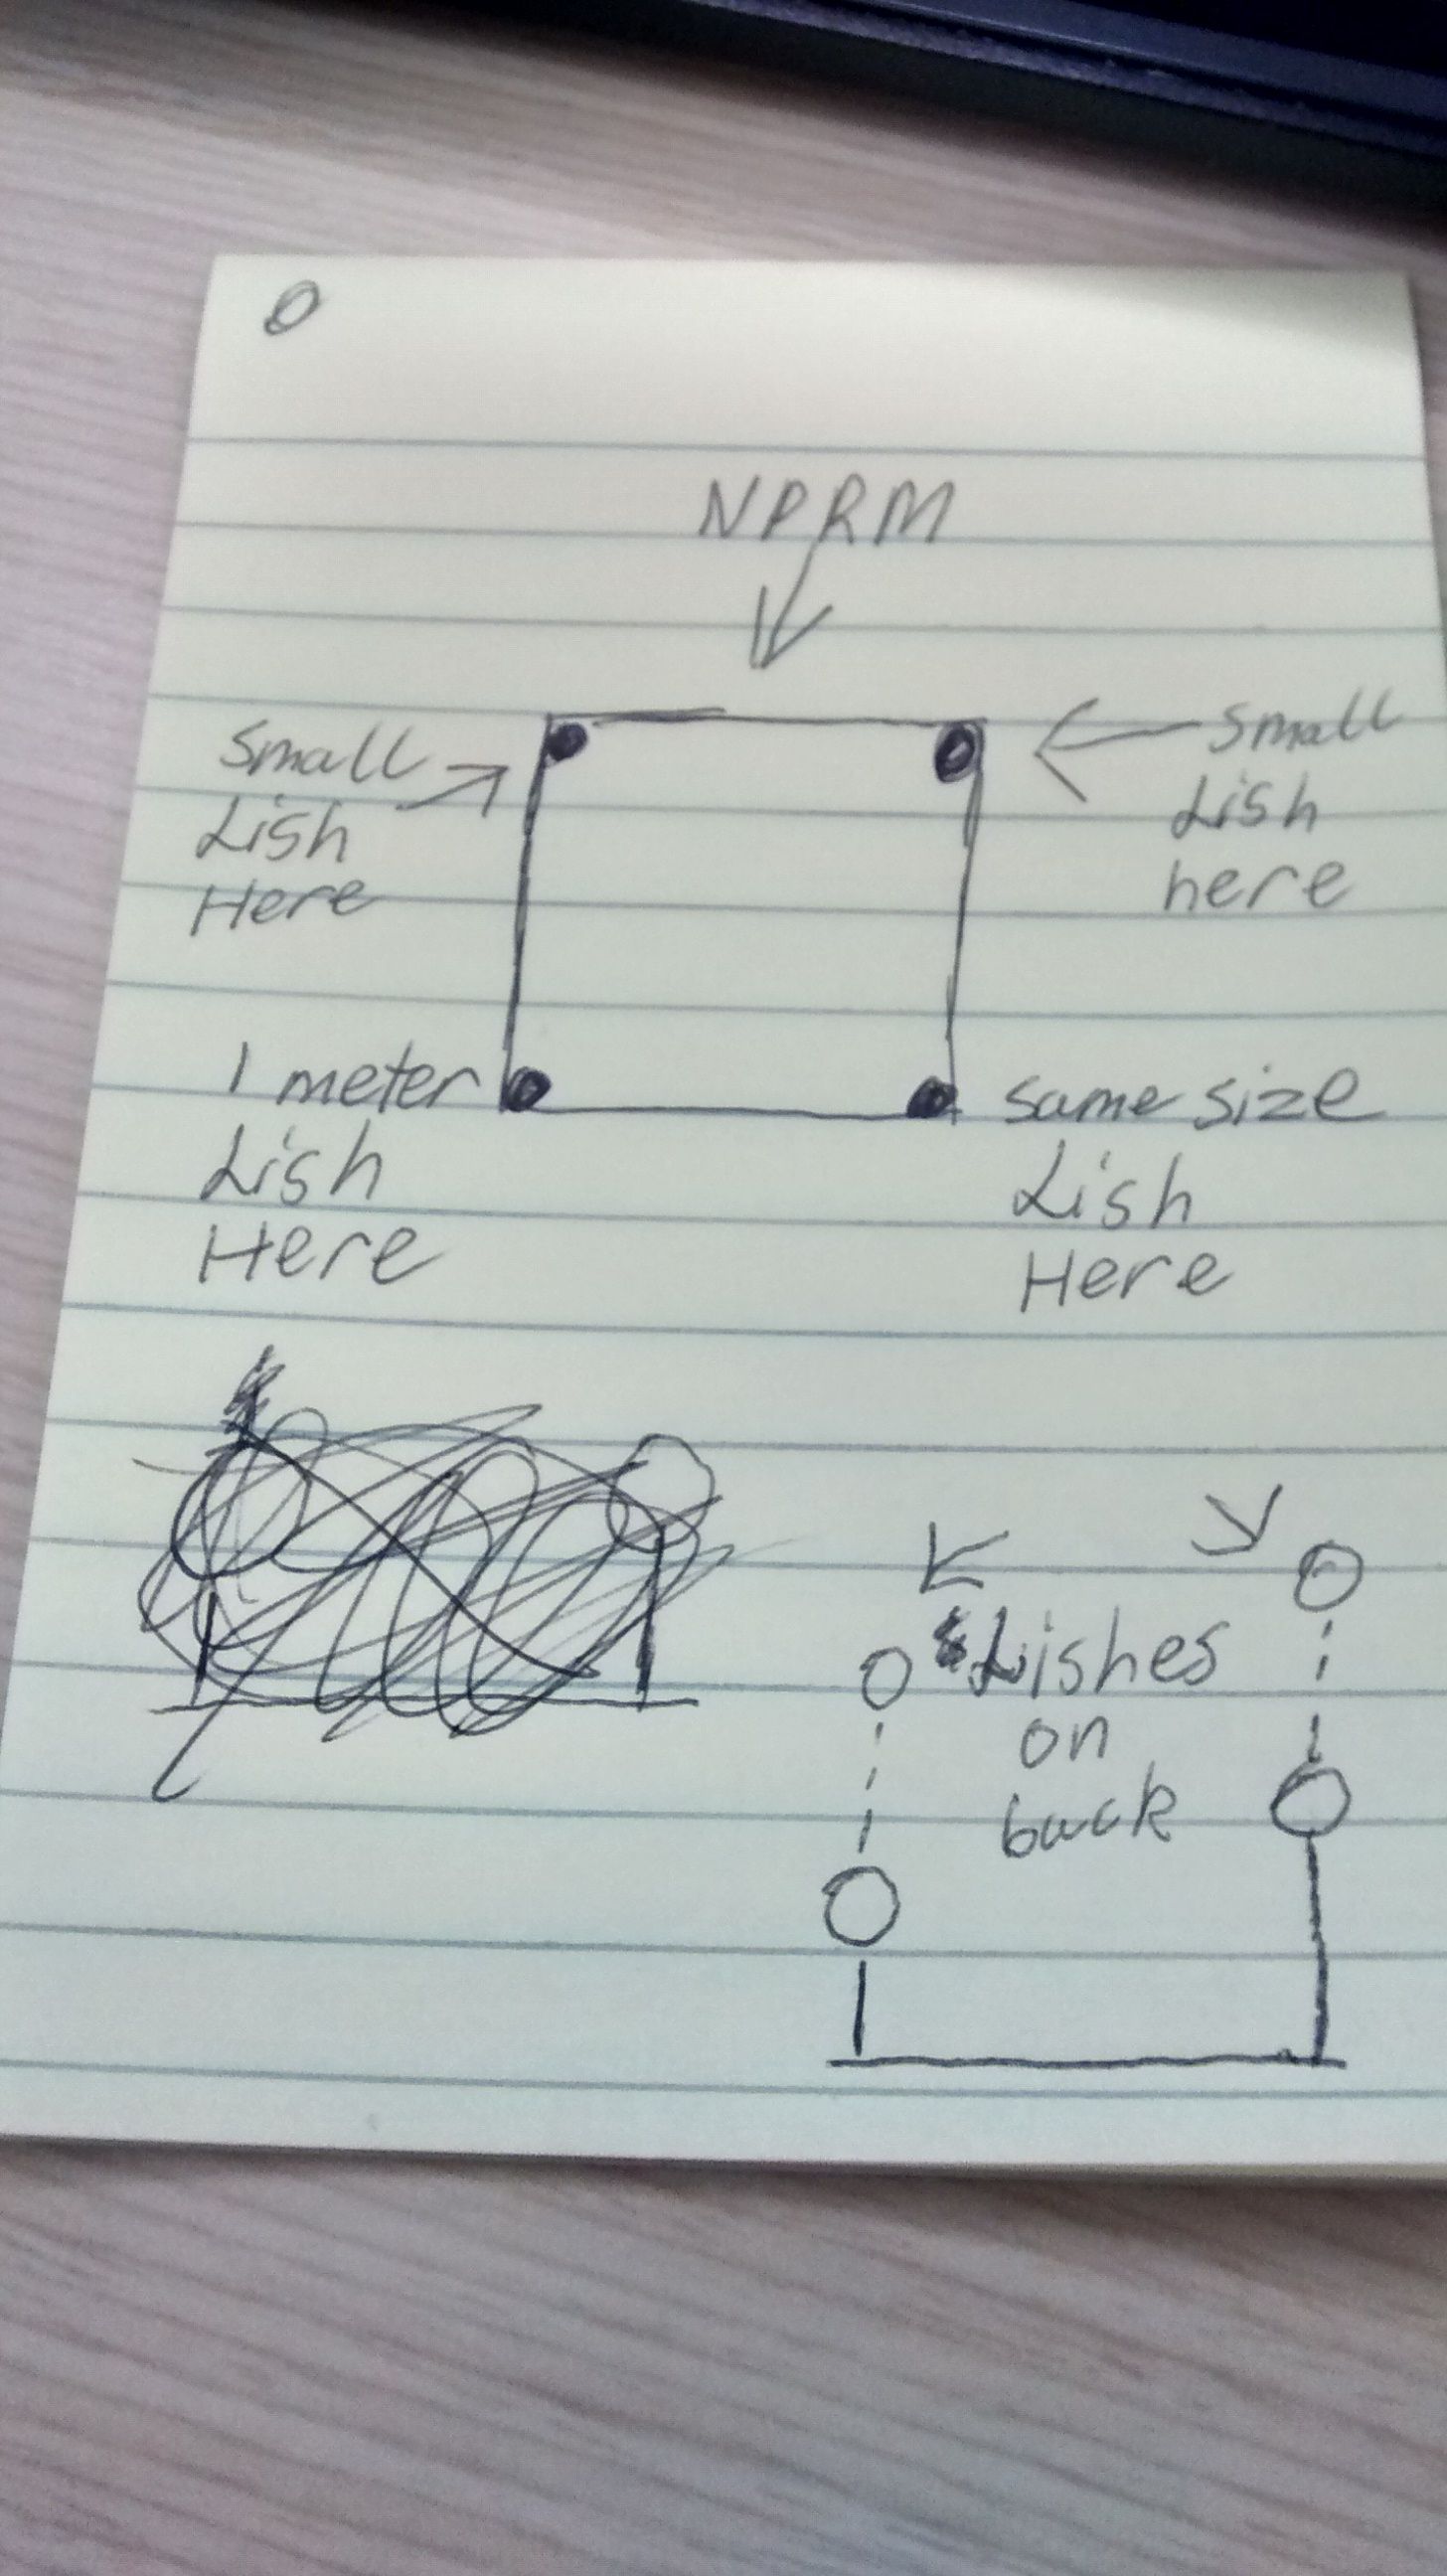 NPRM
Small
Lish
Here
Small
Lish
here
1 meter
Lish
Here
same size
Lish
Here
Lishes
on
back